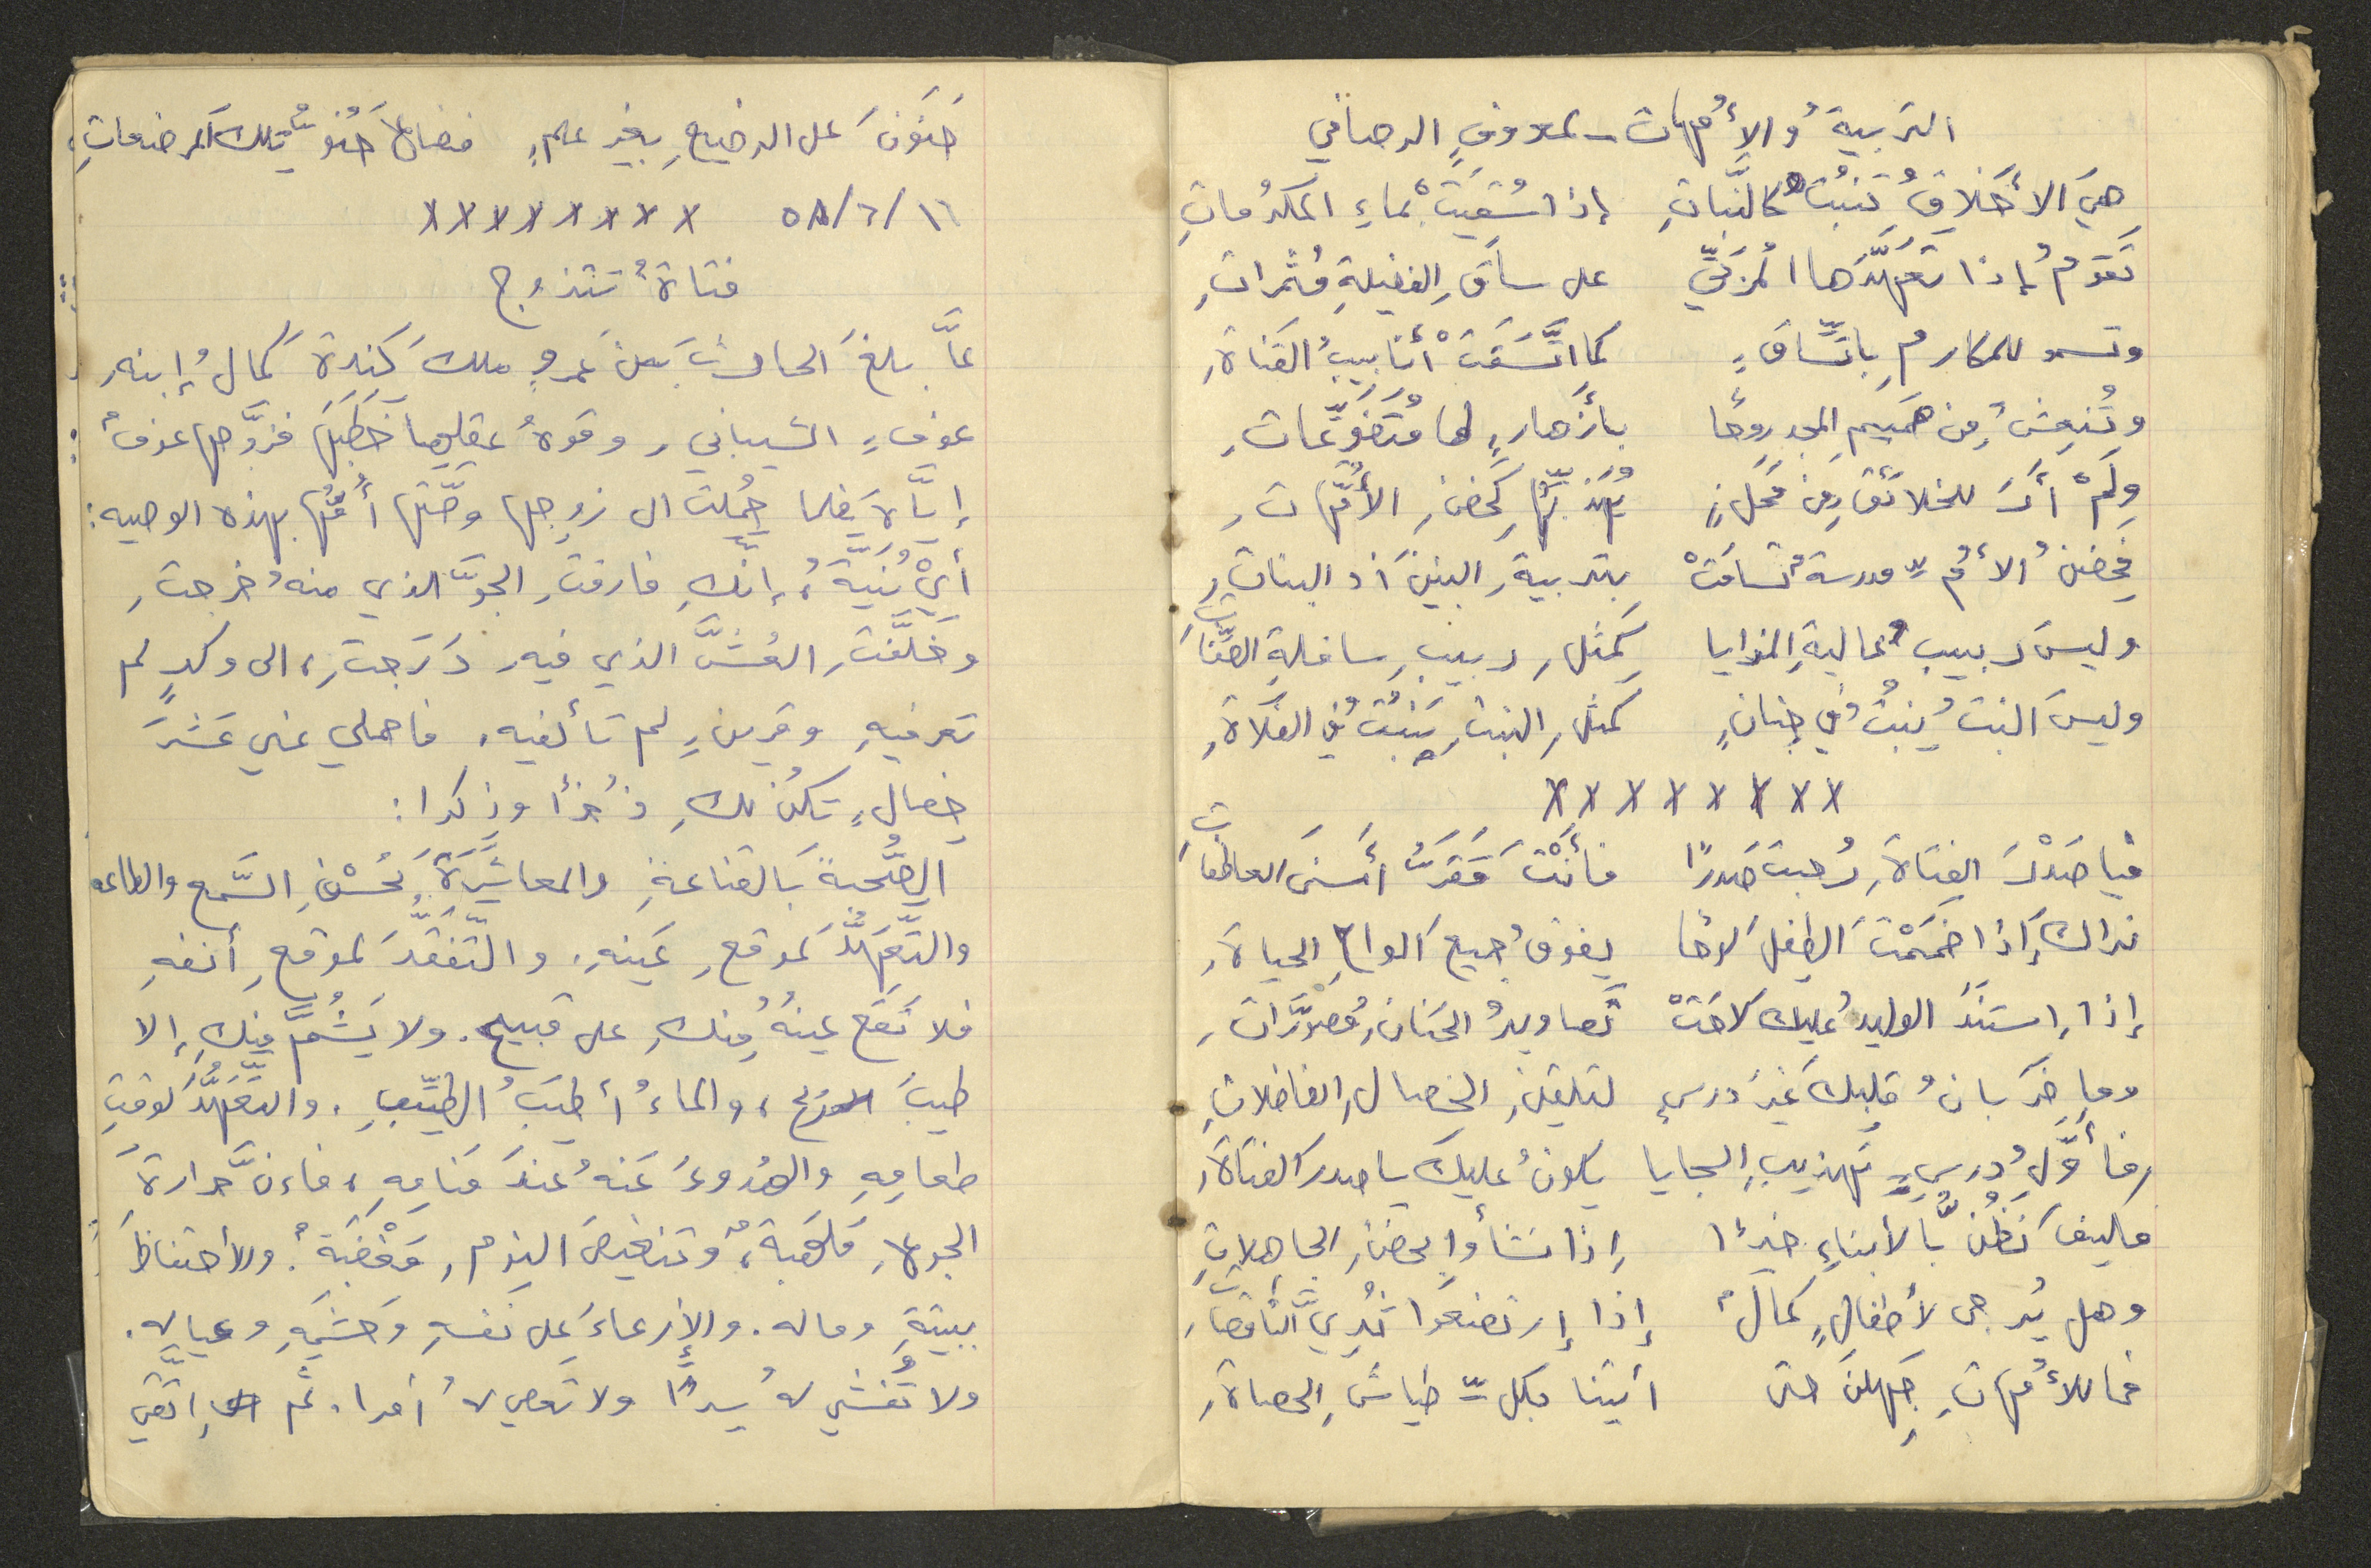 التربيةُ والأُمهات - لمعروفٍ الرصافي
هيَ الأخلاقُ تنبتُ كالنَّباتِ إذا سُقيَتْ بماءِ المكرُماتِ
تَقومُ إذا تعهَّدَها المُربّي على ساقِ الفضيلةِ مُثمراتِ
وتسمو للمكارمِ باتِّساقٍ كما اتَّسَقَتْ أنابيبُ القناةِ
وتُنعِشُ مِن صميمِ المجدِ روحًا بأزهارٍ لها مُتَضَوِّعاتِ
ولَمْ أرَ للخلائقِ مِن محَلٍ يُهَذِّبُها كحِضنِ الأُمَّهاتِ
فحِضنُ الأُمِّ مدرسةٌ تسامَتْ بتربيةِ البنينَ أو البناتِ
وليسَ ربيبُ عاليةِ المزايا كمثلِ ربيبِ سافلةِ الصِّفاتِ
وليسَ النبتُ ينبتُ في جنانٍ كمثلِ النبتِ ينبتُ في الفلاةِ
x x x x x x x x
فيا صَدْرَ الفتاةِ رُحبتَ صَدرًا فأنْتَ مَقَرُّ أسنَى العاطفاتِ
نراكَ إذا ضمَمْتَ الطِفلَ لوحًا يفوقُ جميع ألواحِ الحياةِ
إذا استنَدَ الوليدُ عليك لاحَتْ تصاويرُ الحَنانِ مُصوَّراتِ
وما ضرَبانُ قلبِكَ غيرَ درسٍ لتلقينِ الخصالِ الفاضلاتِ
فأوَّلُ درسِ تهذيبِ السجايا يكونُ عليكَ يا صدرَ الفتاةِ
فكيفَ نظُنُّ بالأبناءِ خيرًا إذا نشأوا بحضنِ الجاهلاتِ
وهل يُرجى لأطفالٍ كمالٌ إذا إرتضعوا ثُديَّ الناقصاتِ
فما للأُمهاتِ جَهِلنَ حتى أتينَا بكلِّ طياشِ الحصاةِ
حَنَوْنَ على الرضيعِ بغيرِ علمٍ فضاعَ حُنوُّ تلكَ المرضعاتِ
١٦/٦/٥٨ x x x x x x x x
فتاةٌ تتزوج
لمَّا بلغَ الحارثَ بنَ عمروٍ ملكَ كندة كمالُ إبنه
عوفٍ الشيباني وقوةُ عقلِها خَطَبَها فزوَّجها عوفُ
إيَّاهَ فلما حُمِلت الى زوجها وصَّتها أُمُّها بهذه الوصيه:
أيْ بُنَيَّةُ، إنَّكِ فارقتِ الجوَّ الذي منهُ خرجتِ
وخَلَّفتِ العُشَّ الذي فيه دَرَجتِ، الى وكرٍ لم
تعرفيهِ وقرينٍ لم تألفيه. فاحملي عني عَشْرَ
خصالٍ تكنْ لكِ ذُخرًا وذكرا:
الصُّحبةَ بالقناعةِ والمعاشَرَةَ بحُسْنِ السَّمعِ والطاعه
والتَّعهُّدَ لموقعِ عَينهِ. والتَّفقُّدَ لموقعِ أنفهِ
فلا تقع عينهُ مِنكِ على قبيح. ولا يَشُمَّ مِنكِ إلا
طيبَ الريح، والماءُ أطيَبُ الطِّيبِ. والتعَهُّدَ لوقتِ
طعامِهِ والهُدوءَ عَنهُ عندَ مَنامِهِ، فإنَّ حرارةَ
الجوعِ مَلهَبةٌ، وتنغيصَ النومِ مَغْضَبَةٌ. والاحتفاظَ
ببيتهِ وماله. والإرعاءَ على نفسهِ وحَشَمهِ وعيالِه.
ولا تُفشي لهُ سِرًّا ولا تعصي لهُ أمرا. ثُم إتقي